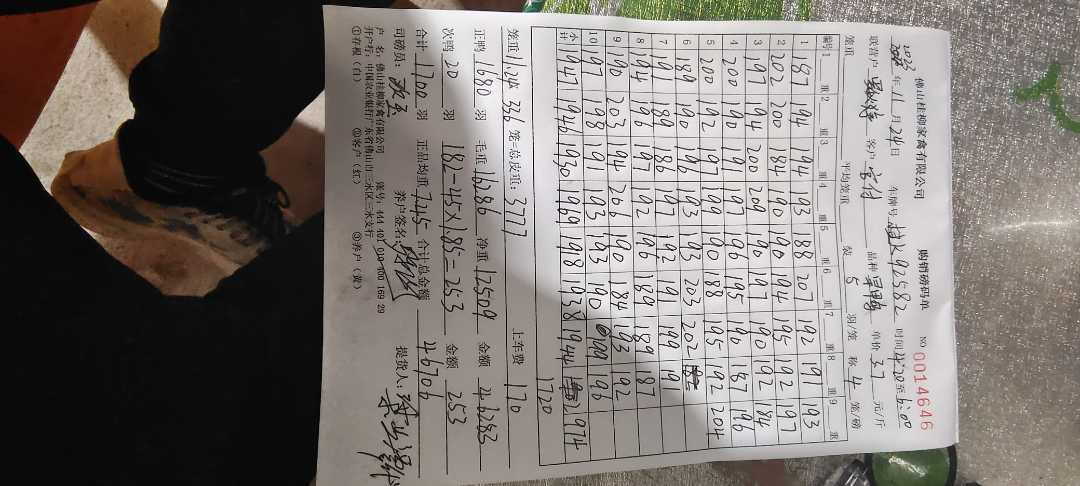 佛山桂柳家禽有限公司 购销磅码单 NO 0014646
年 11 月 24 日 车牌号 92582 时间 4:20 至 6:00
联营户 客户 品种 单价 3.7 元/斤
笼重 平均笼重 装 5 羽/笼 称 4 笼/磅
编号 1 重 2 重 3 重 4 重 5 重 6 重 7 重 8 重 9 重
1 187 194 194 193 188 207 192 191 193
2 202 200 184 190 190 194 195 192 197
3 197 194 200 209 190 197 190 192 184
4 200 190 191 197 196 195 190 187 196
5 200 192 197 199 190 188 195 192 204
6 189 190 196 193 193 203 202
7 191 189 186 197 192 191 199 191
8 194 196 197 192 196 189 189 187
9 190 203 194 206 190 184 193 192
10 197 198 191 193 193 190 199 196
小计 1947 1946 1930 1969 1918 1938 1944 2974
1720
笼重 11.24 336 笼=总皮重: 3777 上车费 170
正鸭 1680 羽 毛重 16286 净重 12509 金额 46283
次鸭 20 羽 182-45×1.85=253 金额 253
合计 1700 羽 正品均重 7.45 合计总金额 46706
司磅员: 养户签名: 提货人:
户 名: 佛山桂柳家禽有限公司 账号: 444 401 010 400 169 29
开户行: 中国农业银行广东省佛山市三水区三水支行
①存根(白) ②客户(红) ③养户(黄)